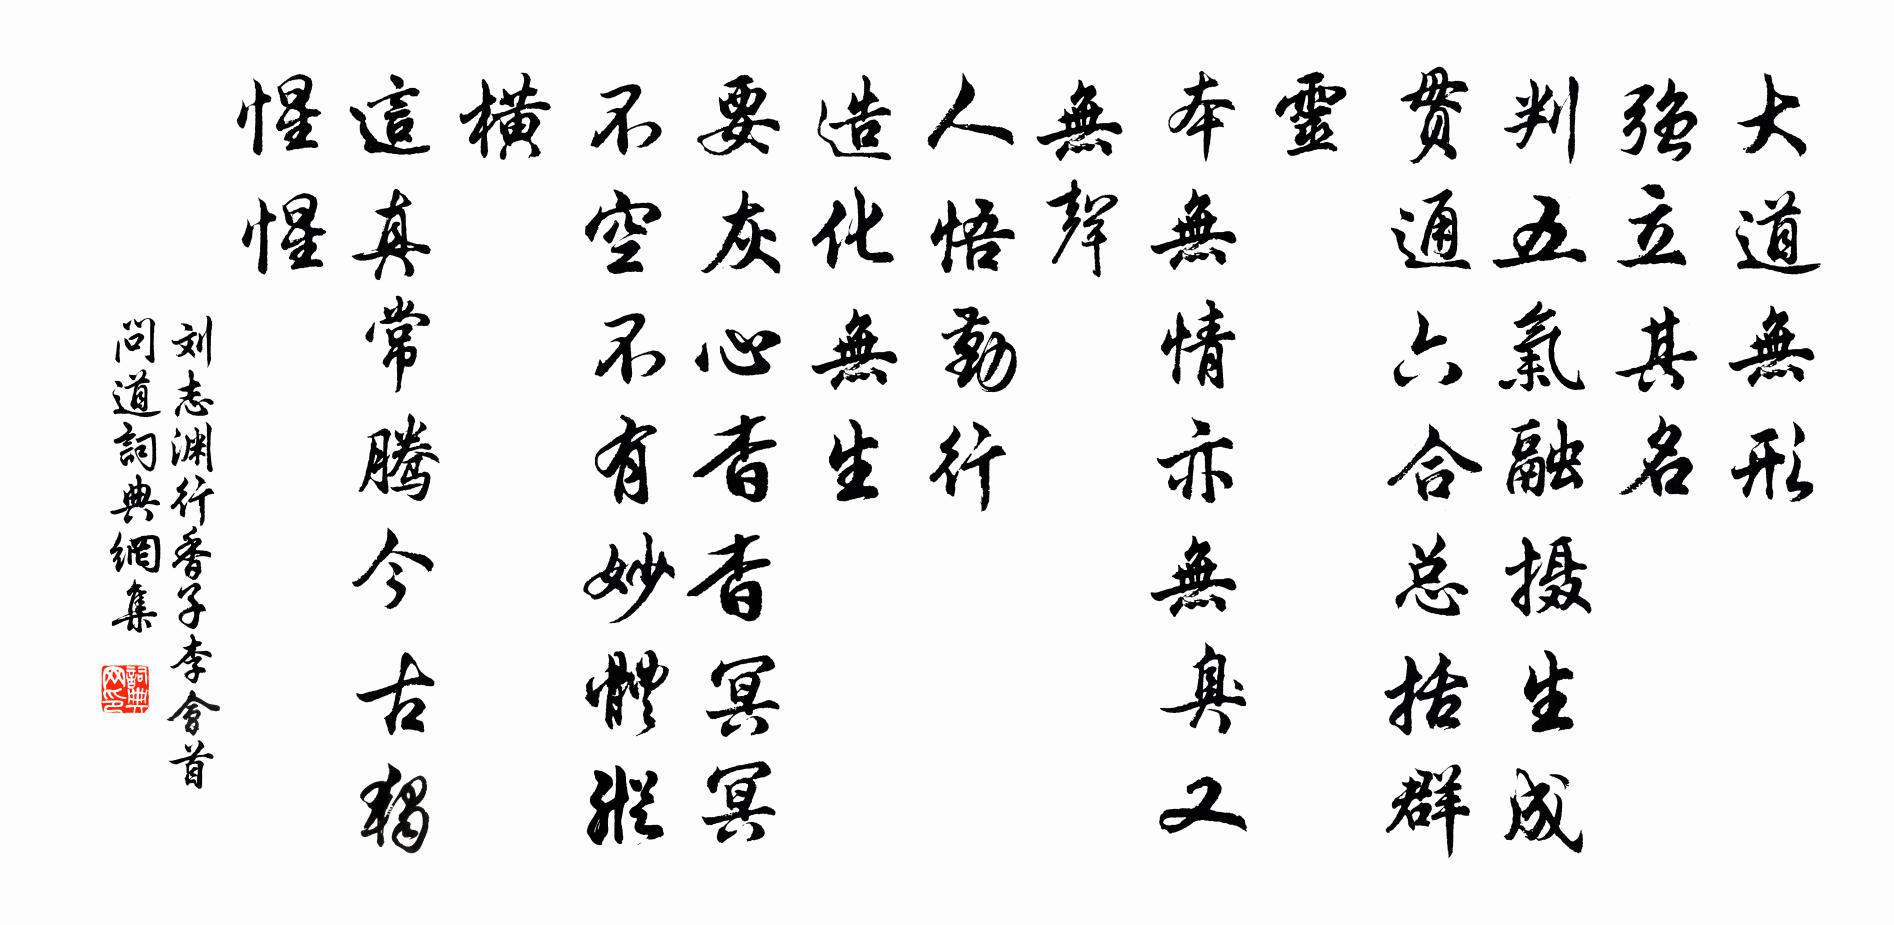 大道無形
强立其名
判五氣融摄生成
贯通六合总括群
靈
本無情亦無臭又
無聲
人悟勤行
造化無生
要灰心杳杳冥冥
不空不有妙體縱
橫
這真常騰今古獨
惺惺
刘志渊行香子李會首
問道詞典網集
詞典网印